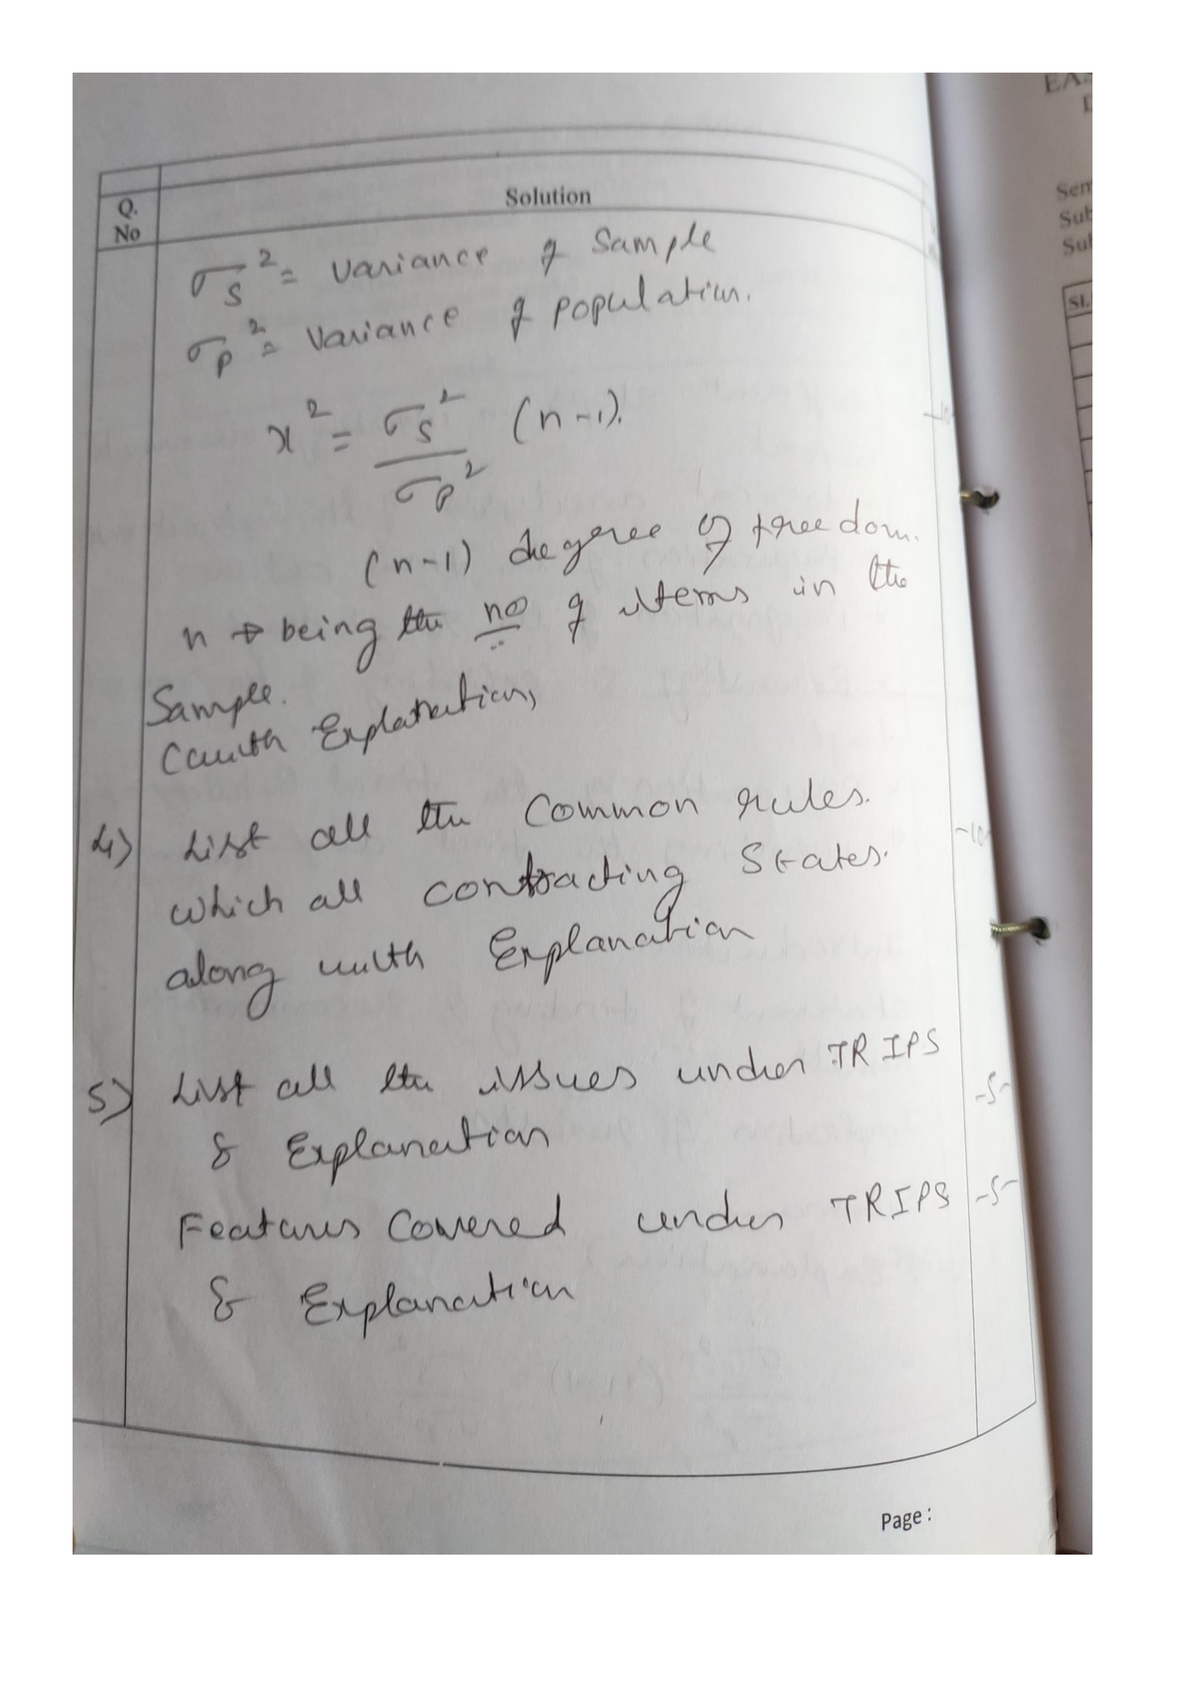 EA
Q.
No
Solution
σs² = variance of Sample
σp² = Variance of population.
x² = σs² / σp² (n-1).
-10-
(n-1) degree of freedom.
n → being the no of items in the
Sample.
(with Explanation)
4) List all the Common rules.
-10-
which all contracting States.
along with Explanation
5) List all the issues under TRIPS
-5-
& Explanation
Features Covered under TRIPS
-5-
& Explanation
Page :
Sem
Sub
Sub
Sl.